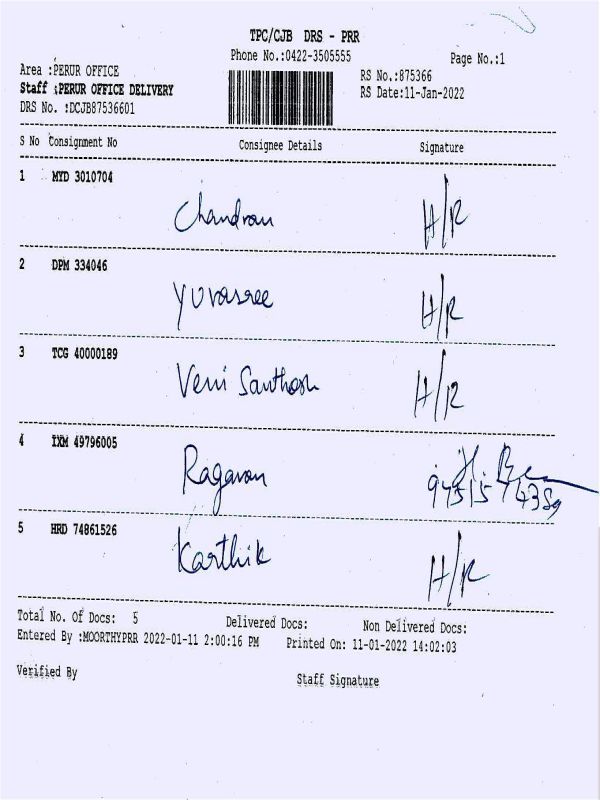 TPC/CJB DRS - PRR
Phone No.:0422-3505555
Page No.:1
Area :PERUR OFFICE
RS No.:875366
Staff :PERUR OFFICE DELIVERY
RS Date:11-Jan-2022
DRS No. :DCJB87536601
S No Consignment No Consignee Details Signature
1 MYD 3010704
Chandran H/R
2 DPM 334046
Yuvasree H/R
3 TCG 40000189
Veni Santhosh H/R
4 IXM 49796005
Ragavan
5 HRD 74861526
Karthik H/R
Total No. Of Docs: 5 Delivered Docs: Non Delivered Docs:
Entered By :MOORTHYPRR 2022-01-11 2:00:16 PM Printed On: 11-01-2022 14:02:03
Verified By Staff Signature